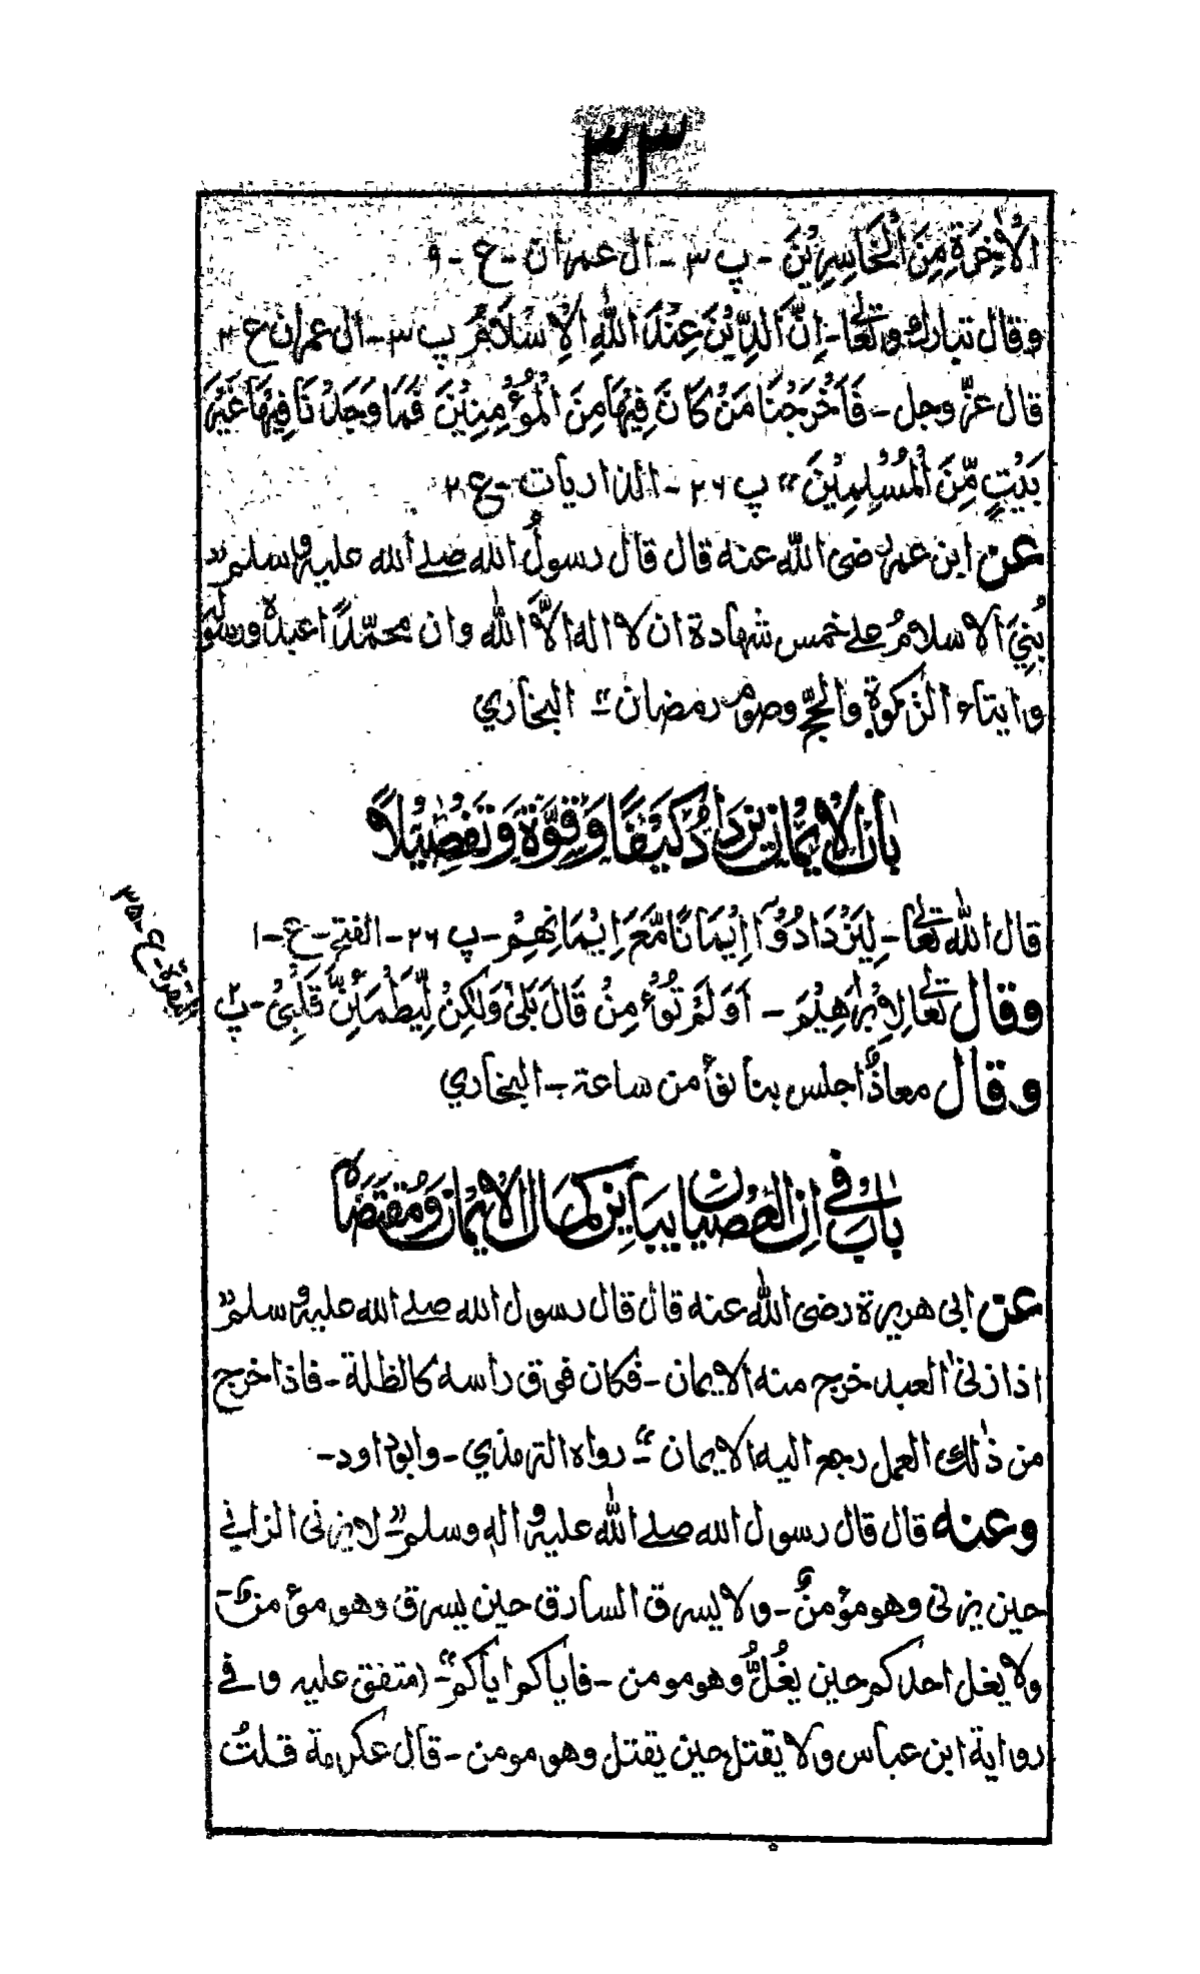 ٣٣
الْاٰخِرَةِ مِنَ الْخَاسِرِيْنَ - پ ٣ - ال عمران - ع - ٩
وقال تبارك وتعالى - اِنَّ الدِّيْنَ عِنْدَ اللّٰهِ الْاِسْلَامُ پ ٣ - ال عمران ع ٢
قال عزّ وجل - فَاَخْرَجْنَا مَنْ كَانَ فِيْهَا مِنَ الْمُؤْمِنِيْنَ فَمَا وَجَدْنَا فِيْهَا غَيْرَ
بَيْتٍ مِّنَ الْمُسْلِمِيْنَ" پ ٢٦ - الذاريات - ع ٢
عن ابن عمر رضى اللّٰه عنه قال قال رسولُ الله صلے الله عليه وسلم "
بُنِيَ الاسلامُ علے خمس شهادة ان لا اله الاَّ اللّٰه وان محمّدًا عبده ورسوله
وايتاء الزكوة والحجّ وصوم رمضان" - البخاري
بابُ الْاِيْمَانِ يَزْدَادُ كَيْفًا وَقُوَّةً وَتَفْصِيْلًا
قال اللّٰه تعالى - لِيَزْدَادُوْٓا اِيْمَانًا مَّعَ اِيْمَانِهِمْ - پ ٢٦ - الفتح - ع - ١
وقال تعالى لِاِبْرَاهِيْمَ - اَوَلَمْ تُؤْمِنْ قَالَ بَلٰى وَلٰكِنْ لِّيَطْمَئِنَّ قَلْبِيْ - پ
البقرة - ع - ٣٥
وقال معاذٌ اجلس بنا نؤمن ساعة - البخاري
بابُ فى اِن العصيان يباين كمال الايمان ومقتضاه
عن ابى هريرة رضى اللّٰه عنه قال قال رسول الله صلے الله عليه وسلم "
اذا زنى العبد خرج منه الايمان - فكان فوق راسه كالظلة - فاذا خرج
من ذٰلك العمل رجع اليه الايمان" - رواه الترمذي - وابوداود -
وعنه قال قال رسول الله صلے اللّٰه عليه واله وسلم " - لايزنى الزاني
حين يزنى وهو مؤمنٌ - ولا يسرق السارق حين يسرق وهو مؤمن -
ولا يغل احدكم حين يغُلُّ وهو مومن - فاياكم اياكم" - (متفق عليه وفے
رواية ابن عباس ولا يقتل حين يقتل وهو مومن - قال عكرمة قلتُ